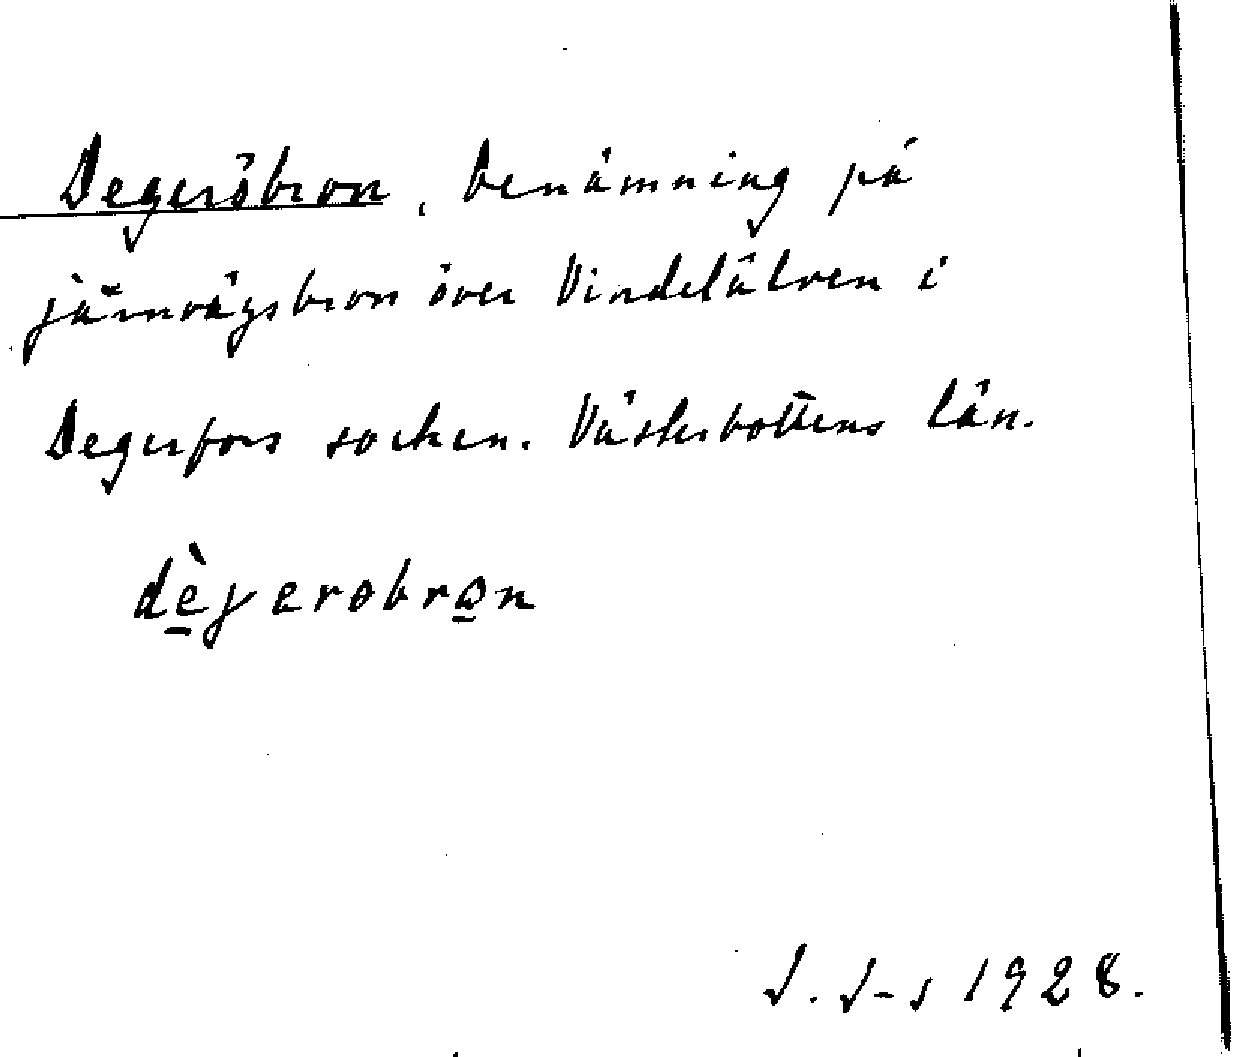 Degeröbron, benämning på
järnvägsbron över Vindelälven i
Degerfors socken. Västerbottens län.
dègerøbrøn
J. J-s 1928.